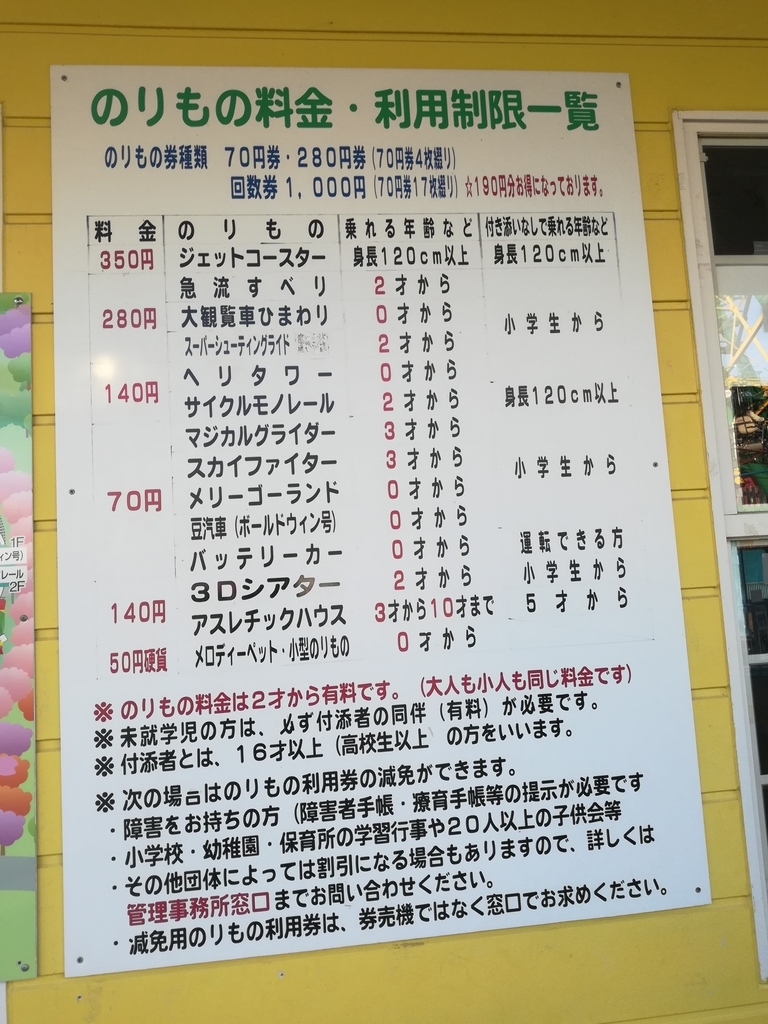 のりもの料金・利用制限一覧
のりもの券種類 70円券・280円券(70円券4枚綴り)
回数券1,000円(70円券17枚綴り)☆190円分お得になっております。
料金 のりもの 乗れる年齢など 付き添いなしで乗れる年齢など
350円 ジェットコースター 身長120cm以上 身長120cm以上
急流すべり 2才から
280円 大観覧車ひまわり 0才から 小学生から
スーパーシューティングライド 2才から
ヘリタワー 0才から
140円 サイクルモノレール 2才から 身長120cm以上
マジカルグライダー 3才から
スカイファイター 3才から 小学生から
70円 メリーゴーランド 0才から
豆汽車(ボールドウィン号) 0才から
バッテリーカー 0才から 運転できる方
3Dシアター 2才から 小学生から
140円 アスレチックハウス 3才から10才まで 5才から
50円硬貨 メロディーペット・小型のりもの 0才から
※のりもの料金は2才から有料です。(大人も小人も同じ料金です)
※未就学児の方は、必ず付添者の同伴(有料)が必要です。
※付添者とは、16才以上(高校生以上 の方をいいます。
※次の場合はのりもの利用券の減免ができます。
・障害をお持ちの方(障害者手帳・療育手帳等の提示が必要です
・小学校・幼稚園・保育所の学習行事や20人以上の子供会等
・その他団体によっては割引になる場合もありますので、詳しくは
管理事務所窓口までお問い合わせください。
・減免用のりもの利用券は、券売機ではなく窓口でお求めください。
1F
ィン号)
レール
2F